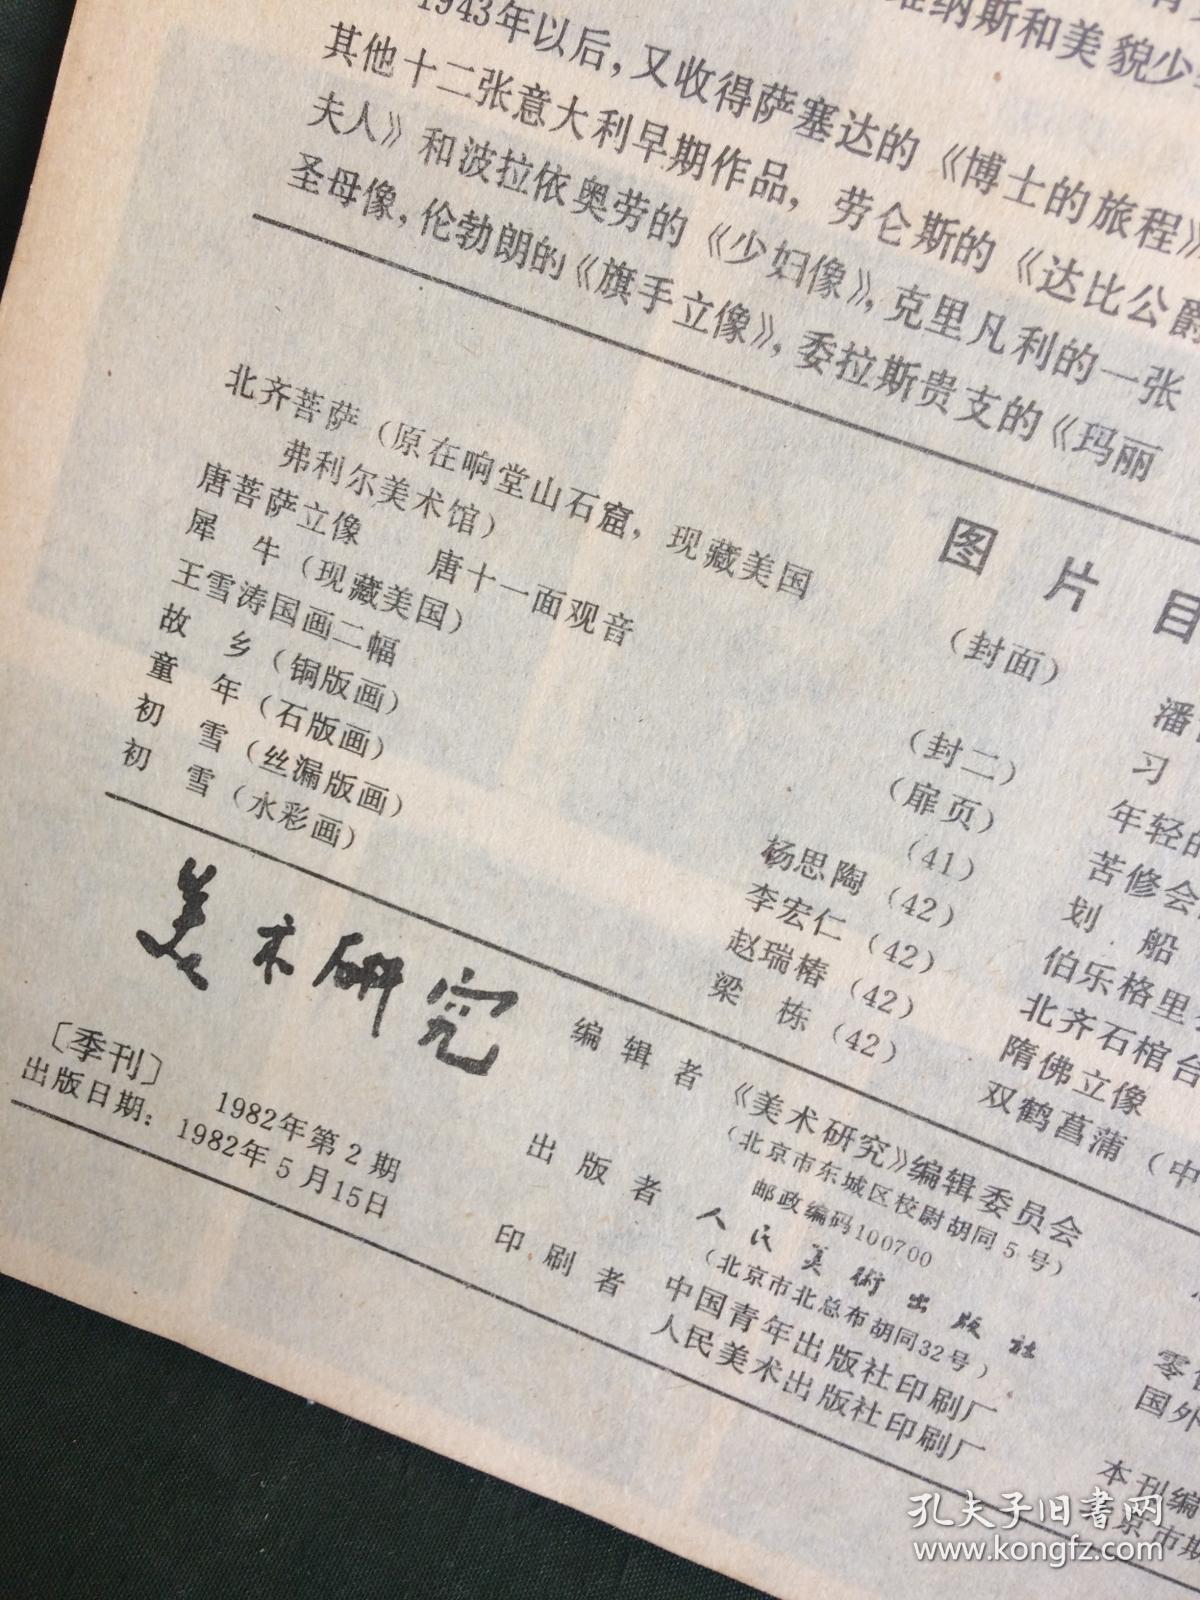 维纳斯和美貌少
1943年以后，又收得萨塞达的《博士的旅程》
其他十二张意大利早期作品，劳仑斯的《达比公爵
夫人》和波拉依奥劳的《少妇像》，克里凡利的一张
圣母像，伦勃朗的《旗手立像》，委拉斯贵支的《玛丽
图片目
北齐菩萨（原在响堂山石窟，现藏美国
弗利尔美术馆）
（封面）
唐菩萨立像 唐十一面观音
（封二）
犀牛（现藏美国）
（扉页）
王雪涛国画二幅
（41）
故乡（铜版画）
杨思陶（42）
童年（石版画）
李宏仁（42）
初雪（丝漏版画）
赵瑞椿（42）
初雪（水彩画）
梁栋（42）
潘
习
年轻的
苦修会
划船
伯乐格里
北齐石棺台
隋佛立像
双鹤菖蒲（中
美术研究
〔季刊〕
1982年第2期
出版日期：1982年5月15日
编辑者 《美术研究》编辑委员会
（北京市东城区校尉胡同5号）
邮政编码100700
出版者 人民美術出版社
（北京市北总布胡同32号）
印刷者 中国青年出版社印刷厂
人民美术出版社印刷厂
零售
国外
本刊编
北京市期
孔夫子旧书网
www.kongfz.com